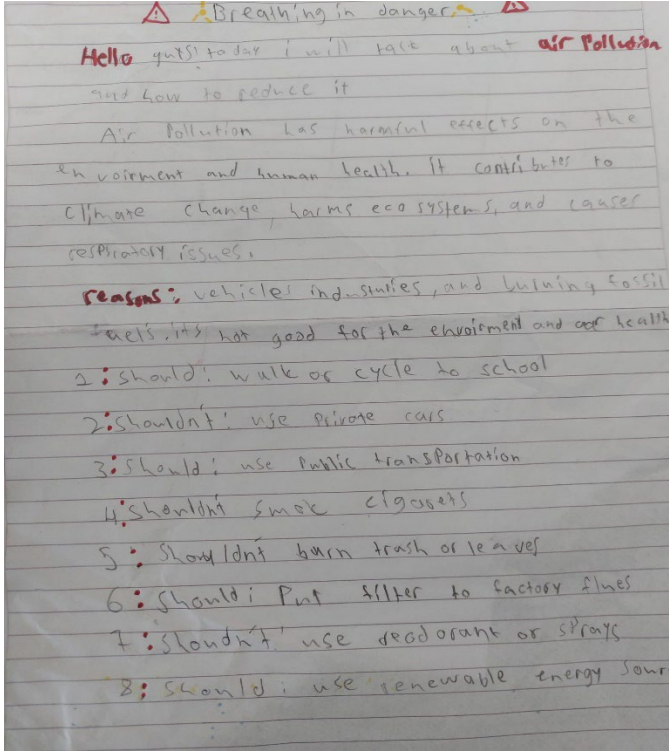 ⚠ Breathing in danger ⚠
Hello guys! today i will talk about air Pollution
and how to reduce it
Air Pollution has harmful effects on the
envoirment and human health. It contributes to
Climate change, harms eco systems, and causes
respiratory issues.
reasons: vehicles industries, and burning fossil
fuels. its not good for the envoirment and our health
1: should: walk or cycle to school
2: shouldn't: use Private cars
3: should: use Public transportation
4: shouldn't smok cigarets
5: shouldn't burn trash or leaves
6: should: Put filter to factory flues
7: shoudn't: use deodorant or sprays
8: should: use renewable energy sour